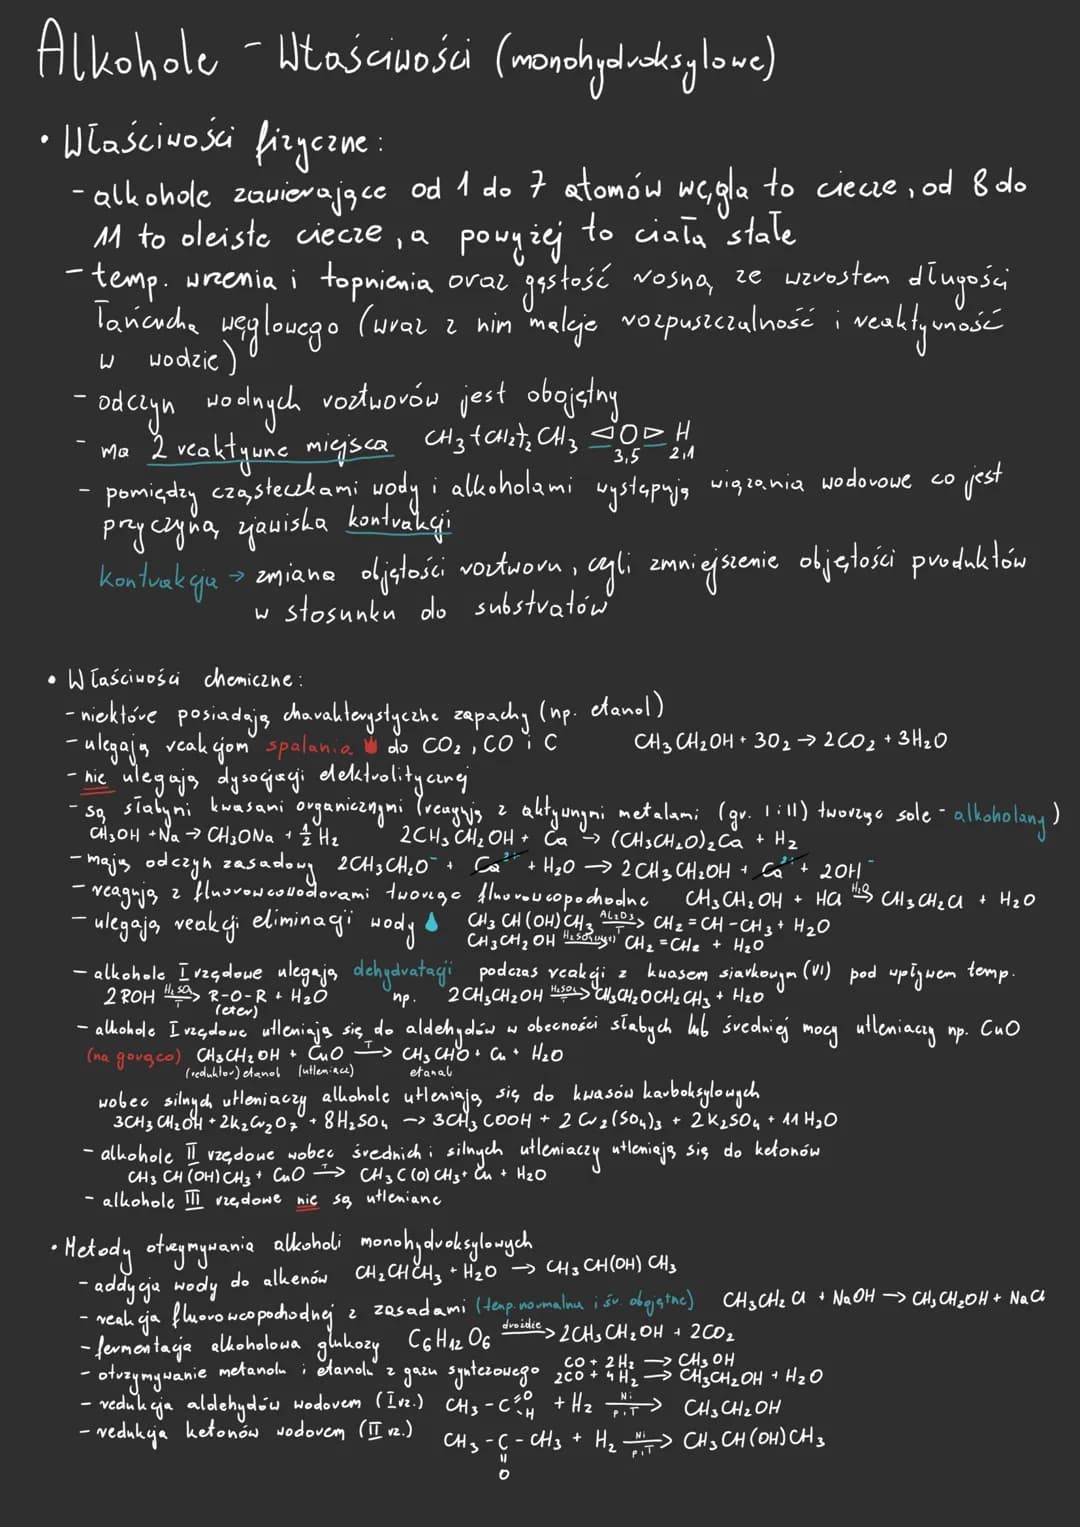 Alkohole - Właściwości (monohydroksylowe)
• Właściwości fizyczne:
- alkohole zawierające od 1 do 7 atomów węgla to ciecze, od 8 do
11 to oleiste ciecze, a powyżej to ciała stałe
- temp. wrzenia i topnienia oraz gęstość rosną ze wzrostem długości
łańcucha węglowego (wraz z nim maleje rozpuszczalność i reaktywność
w wodzie)
- odczyn wodnych roztworów jest obojętny
- ma 2 reaktywne miejsca CH₃-(CH₂)₂ CH₃ ◁O▷ H
3,5 2,1
- pomiędzy cząsteczkami wody i alkoholami występują wiązania wodorowe co jest
przyczyną zjawiska kontrakcji
kontrakcja → zmiana objętości roztworu, czyli zmniejszenie objętości produktów
w stosunku do substratów
• Właściwości chemiczne:
- niektóre posiadają charakterystyczne zapachy (np. etanol)
- ulegają reakcjom spalania do CO₂, CO i C CH₃CH₂OH + 3O₂ → 2CO₂ + 3H₂O
- nie ulegają dysocjacji elektrolitycznej
- są słabymi kwasami organicznymi (reagują z aktywnymi metalami (gr. I i II) tworząc sole - alkoholany)
CH₃OH + Na → CH₃ONa + ½ H₂ 2CH₃CH₂OH + Ca → (CH₃CH₂O)₂Ca + H₂
- mają odczyn zasadowy 2CH₃CH₂O⁻ + Ca²⁺ + H₂O → 2CH₃CH₂OH + Ca²⁺ + 2OH⁻
- reagują z fluorowcowodorami tworząc fluorowcopochodne CH₃CH₂OH + HCl H₂O→ CH₃CH₂Cl + H₂O
- ulegają reakcji eliminacji wody CH₃CH(OH)CH₃ Al₂O₃→ CH₂=CH-CH₃ + H₂O
CH₃CH₂OH H₂SO₄(stęż) T→ CH₂=CH₂ + H₂O
- alkohole I rzędowe ulegają dehydratacji podczas reakcji z kwasem siarkowym (VI) pod wpływem temp.
2 ROH H₂SO₄ T→ R-O-R + H₂O np. 2CH₃CH₂OH H₂SO₄ T→ CH₃CH₂OCH₂CH₃ + H₂O
(eter)
- alkohole I rzędowe utleniają się do aldehydów w obecności słabych lub średniej mocy utleniaczy np. CuO
(na gorąco) CH₃CH₂OH + CuO T→ CH₃CHO + Cu + H₂O
(reduktor) etanol (utleniacz) etanal
wobec silnych utleniaczy alkohole utleniają się do kwasów karboksylowych
3CH₃CH₂OH + 2K₂Cr₂O₇ + 8H₂SO₄ → 3CH₃COOH + 2Cr₂(SO₄)₃ + 2K₂SO₄ + 11H₂O
- alkohole II rzędowe wobec średnich i silnych utleniaczy utleniają się do ketonów
CH₃CH(OH)CH₃ + CuO T→ CH₃C(O)CH₃ + Cu + H₂O
- alkohole III rzędowe nie są utleniane
• Metody otrzymywania alkoholi monohydroksylowych
- addycja wody do alkenów CH₂CHCH₃ + H₂O → CH₃CH(OH)CH₃
- reakcja fluorowcopochodnej z zasadami (temp. normalna i śr. obojętne) CH₃CH₂Cl + NaOH → CH₃CH₂OH + NaCl
- fermentacja alkoholowa glukozy C₆H₁₂O₆ drożdże→ 2CH₃CH₂OH + 2CO₂
- otrzymywanie metanolu i etanolu z gazu syntezowego CO + 2H₂ → CH₃OH
2CO + 4H₂ → CH₃CH₂OH + H₂O
- redukcja aldehydów wodorem (I rz.) CH₃-C=O -H + H₂ Ni p,T→ CH₃CH₂OH
- redukcja ketonów wodorem (II rz.) CH₃-C-CH₃ + H₂ Ni p,T→ CH₃CH(OH)CH₃
O